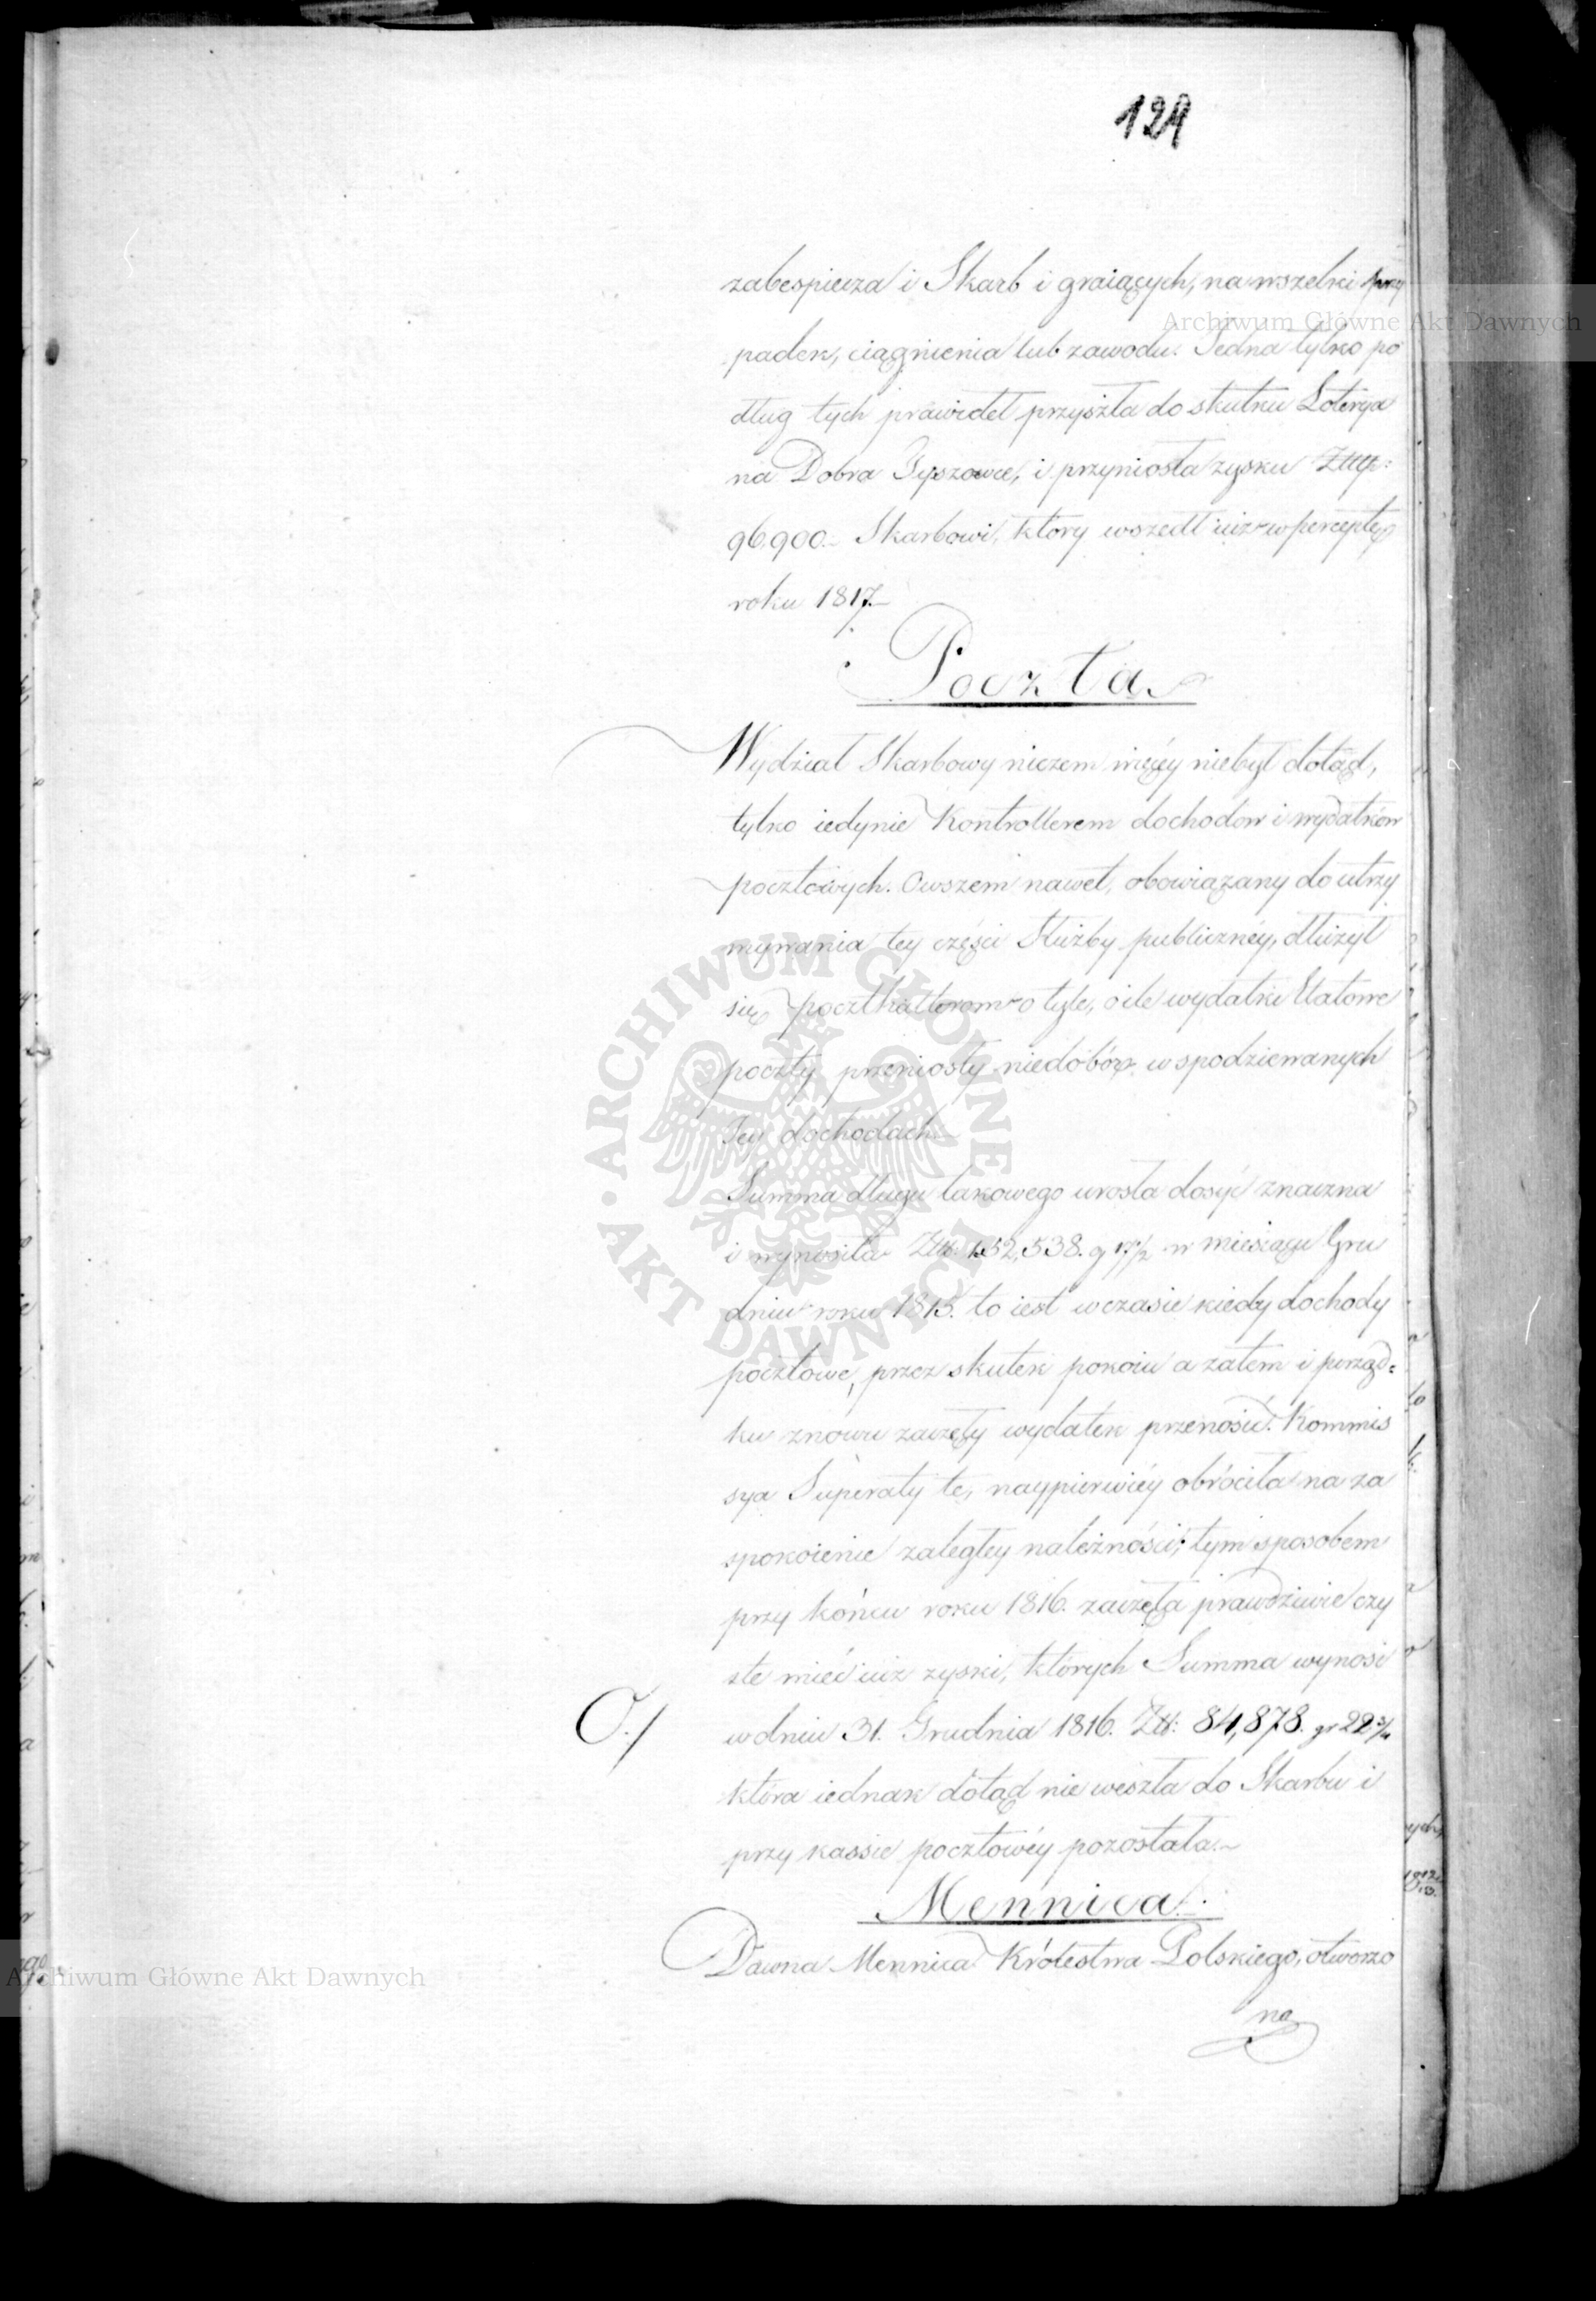 129
zabespiecza i Skarb i graiących, na wszelki przy
padek, ciągnienia lub zawodu. Jedna tylko po
dług tych prawideł przyszła do skutku Loterya
na Dobra Tyszowce, i przyniosła zysku Złtp:
96,900.- Skarbowi, który wszedł iuż w perceptę
roku 1817.-
Poczta
Wydział Skarbowy niczem więcéy niebył dotąd,
tylko iedynie Kontrollerem dochodów i wydatków
pocztowych. Owszem nawet, obowiązany do utrzy
mywania tey części Służby publicznéy, dłużył
się poczthalterom o tyle, o ile wydatki Etatowe
poczty przeniosły niedobór w spodziewanych
Jey dochodach.-
Summa długu takowego urosła dosyć znaczna
i wynosiła Złt: 152,538. g 17 1/2 w miesiącu Gru
dniu roku 1815. to iest w czasie kiedy dochody
pocztowe, przez skutek pokoiu a zatem i porząd=
ku znowu zaczęły wydatek przenosić. Kommis
sya Superaty te, naypierwiéy obróciła na za
spokoienie zaległey należności; tym sposobem
przy końcu roku 1816. zaczęła prawdziwie czy
ste mieć iuż zyski, których Summa wynosi
O./ w dniu 31. Grudnia 1816. Złt: 84,878. gr 22 3/4
która iednak dotąd nie weszła do Skarbu i
przy kassie pocztowéy pozostała.-
Mennica.
Dawna Mennica Królestwa Polskiego, otworzo
na
Archiwum Główne Akt Dawnych
Archiwum Główne Akt Dawnych
ARCHIWUM GŁÓWNE AKT DAWNYCH